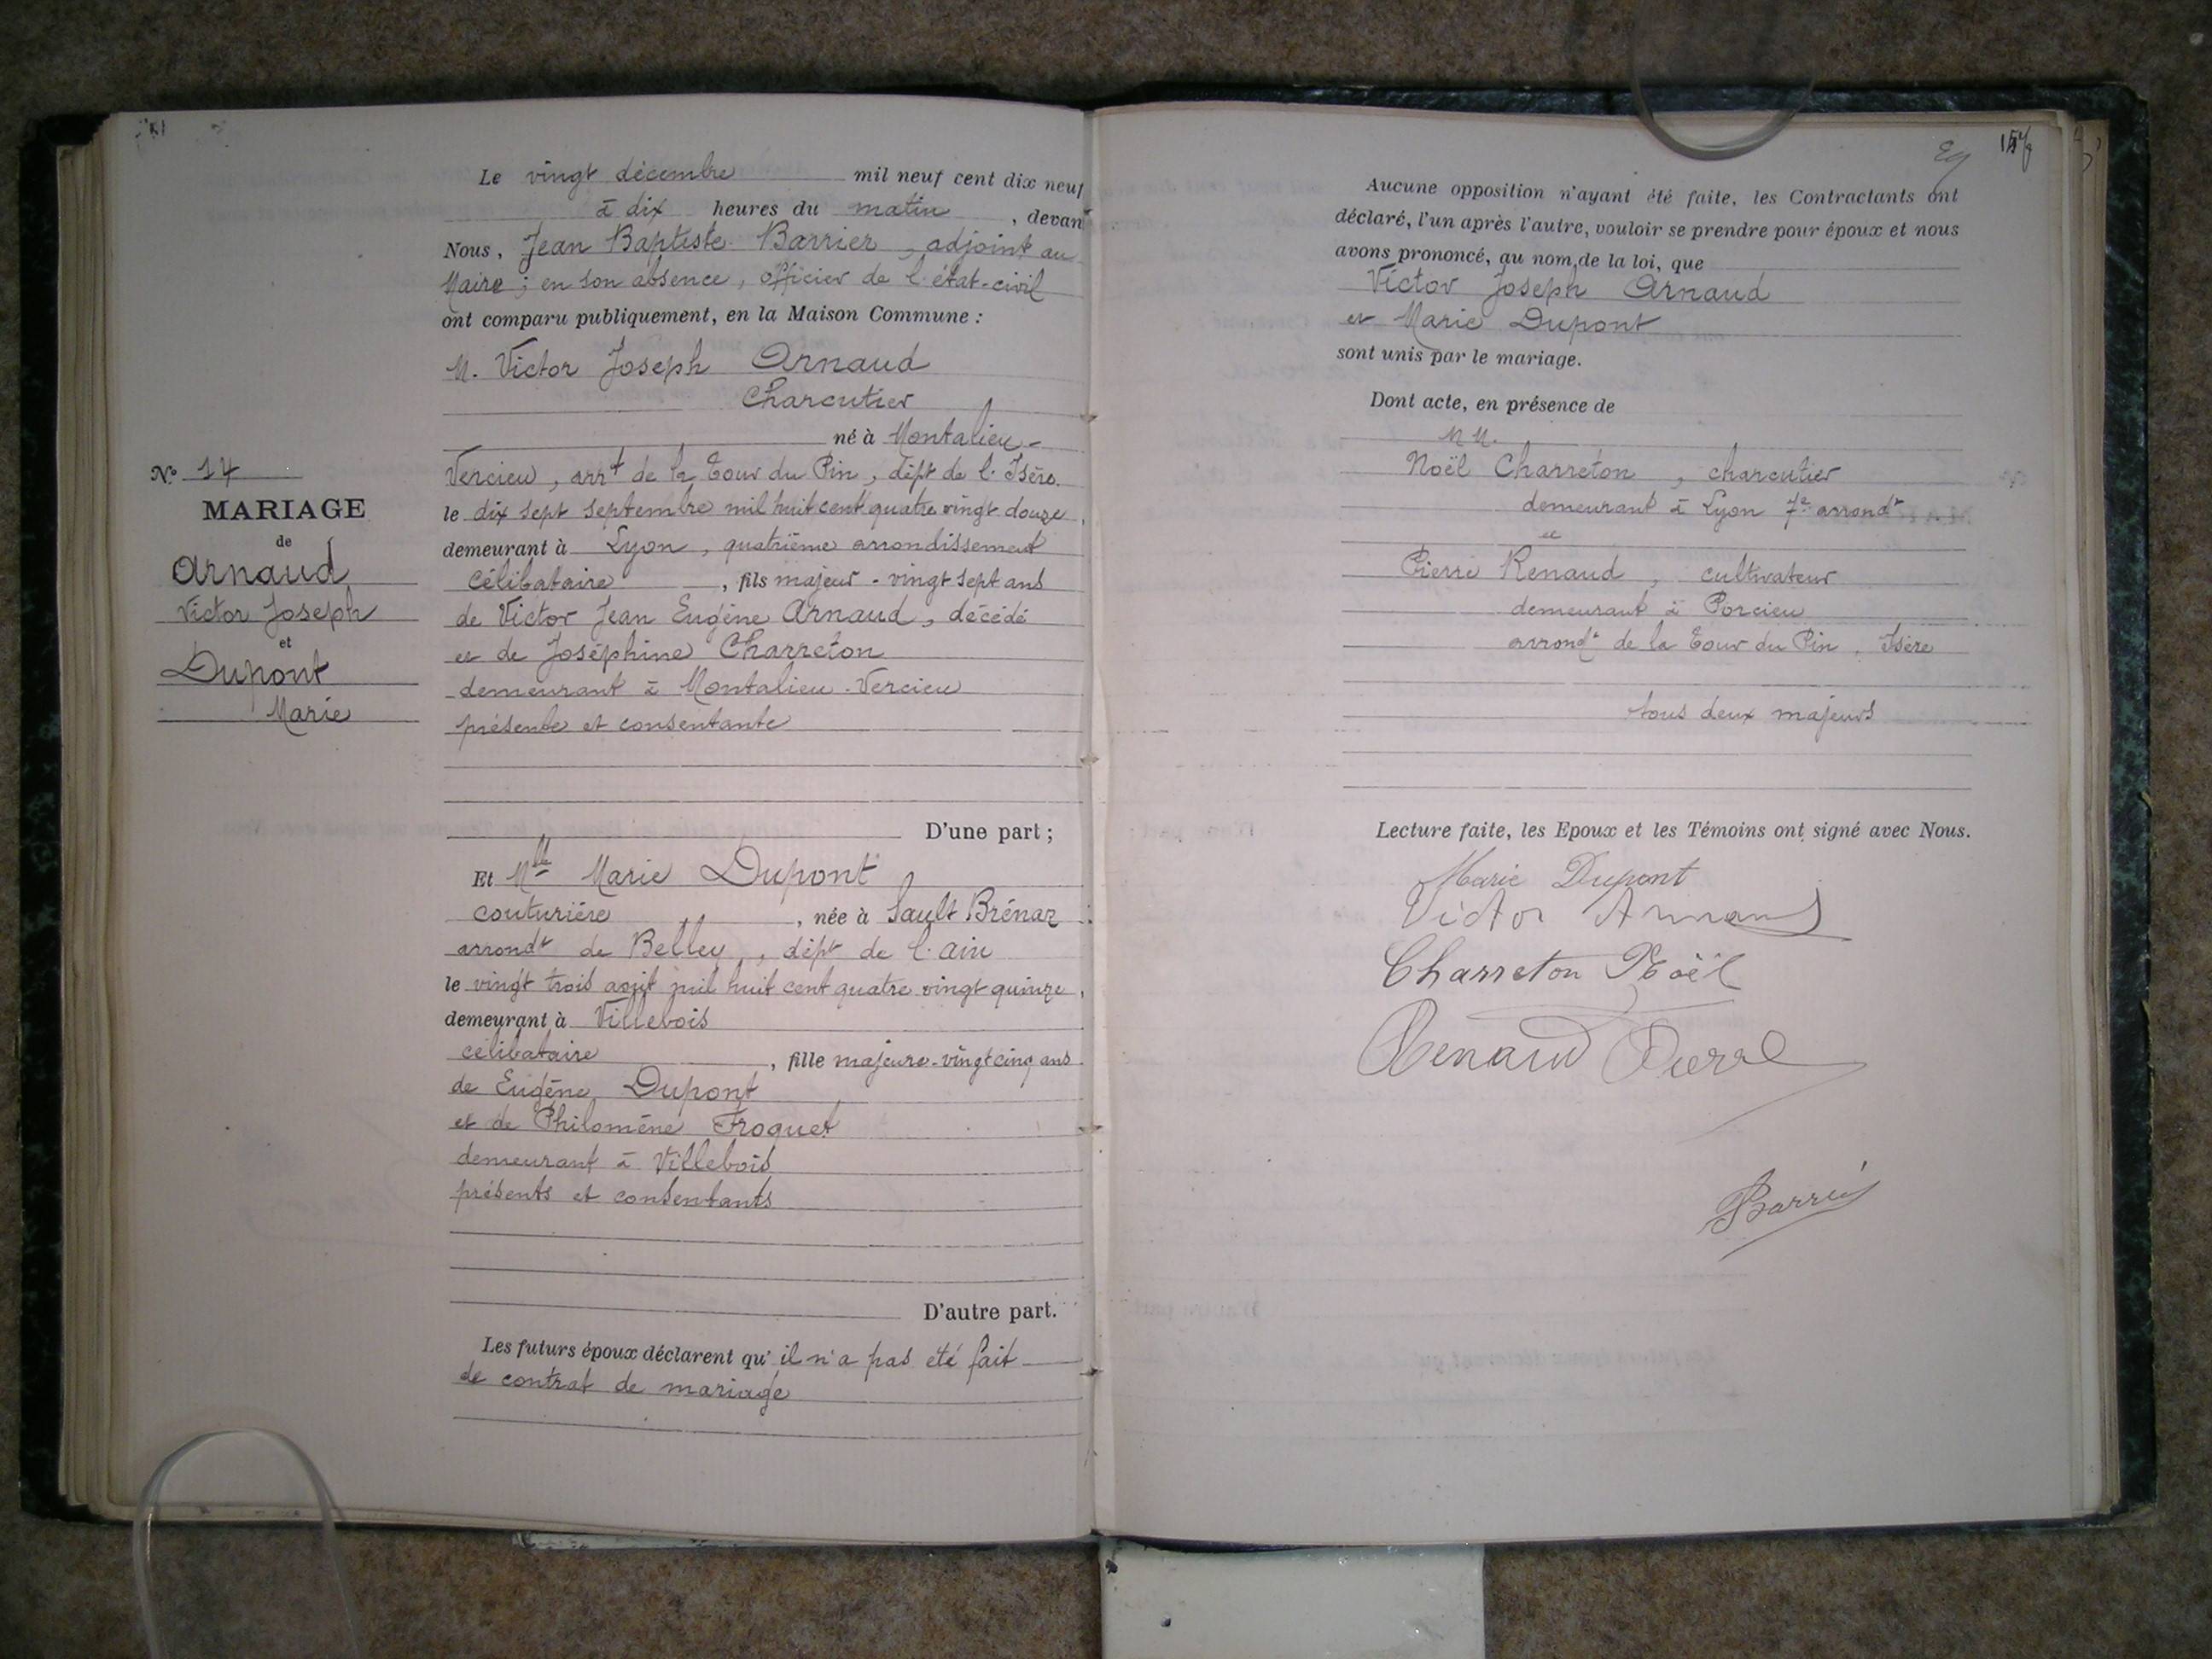 Le vingt décembre mil neuf cent dix neuf
à dix heures du matin, devant
Nous, Jean Baptiste Barrier, adjoint au
Maire ; en son absence, officier de l'état-civil
ont comparu publiquement, en la Maison Commune :
M. Victor Joseph Arnaud
Charcutier
né à Montalieu-
Vercieu, arrt de la Tour du Pin, dépt de l'Isère.
le dix sept septembre mil huit cent quatre vingt douze,
demeurant à Lyon, quatrième arrondissement
célibataire, fils majeur - vingt sept ans
de Victor Jean Eugène Arnaud, décédé
et de Joséphine Charreton
demeurant à Montalieu-Vercieu
présente et consentante
D'une part ;
Nº 14
MARIAGE
de
Arnaud
Victor Joseph
et
Dupont
Marie
Et Mlle Marie Dupont
couturière, née à Sault Brénaz
arrondt de Belley, dépt de l'ain
le vingt trois août mil huit cent quatre vingt quinze,
demeurant à Villebois
célibataire, fille majeure - vingt cinq ans
de Eugène Dupont
et de Philomène Froquet
demeurant à Villebois
présents et consentants
D'autre part.
Les futurs époux déclarent qu'il n'a pas été fait
de contrat de mariage
Aucune opposition n'ayant été faite, les Contractants ont
déclaré, l'un après l'autre, vouloir se prendre pour époux et nous
avons prononcé, au nom de la loi, que
Victor Joseph Arnaud
et Marie Dupont
sont unis par le mariage.
Dont acte, en présence de
MM.
Noël Charreton, charcutier
demeurant à Lyon 7e arrondt
et
Pierre Renaud, cultivateur
demeurant à Porcieu
arrondt de la Tour du Pin, Isère
tous deux majeurs
Lecture faite, les Epoux et les Témoins ont signé avec Nous.
Marie Dupont
Victor Arnaud
Charreton Noël
Renaud Pierre
Barrier